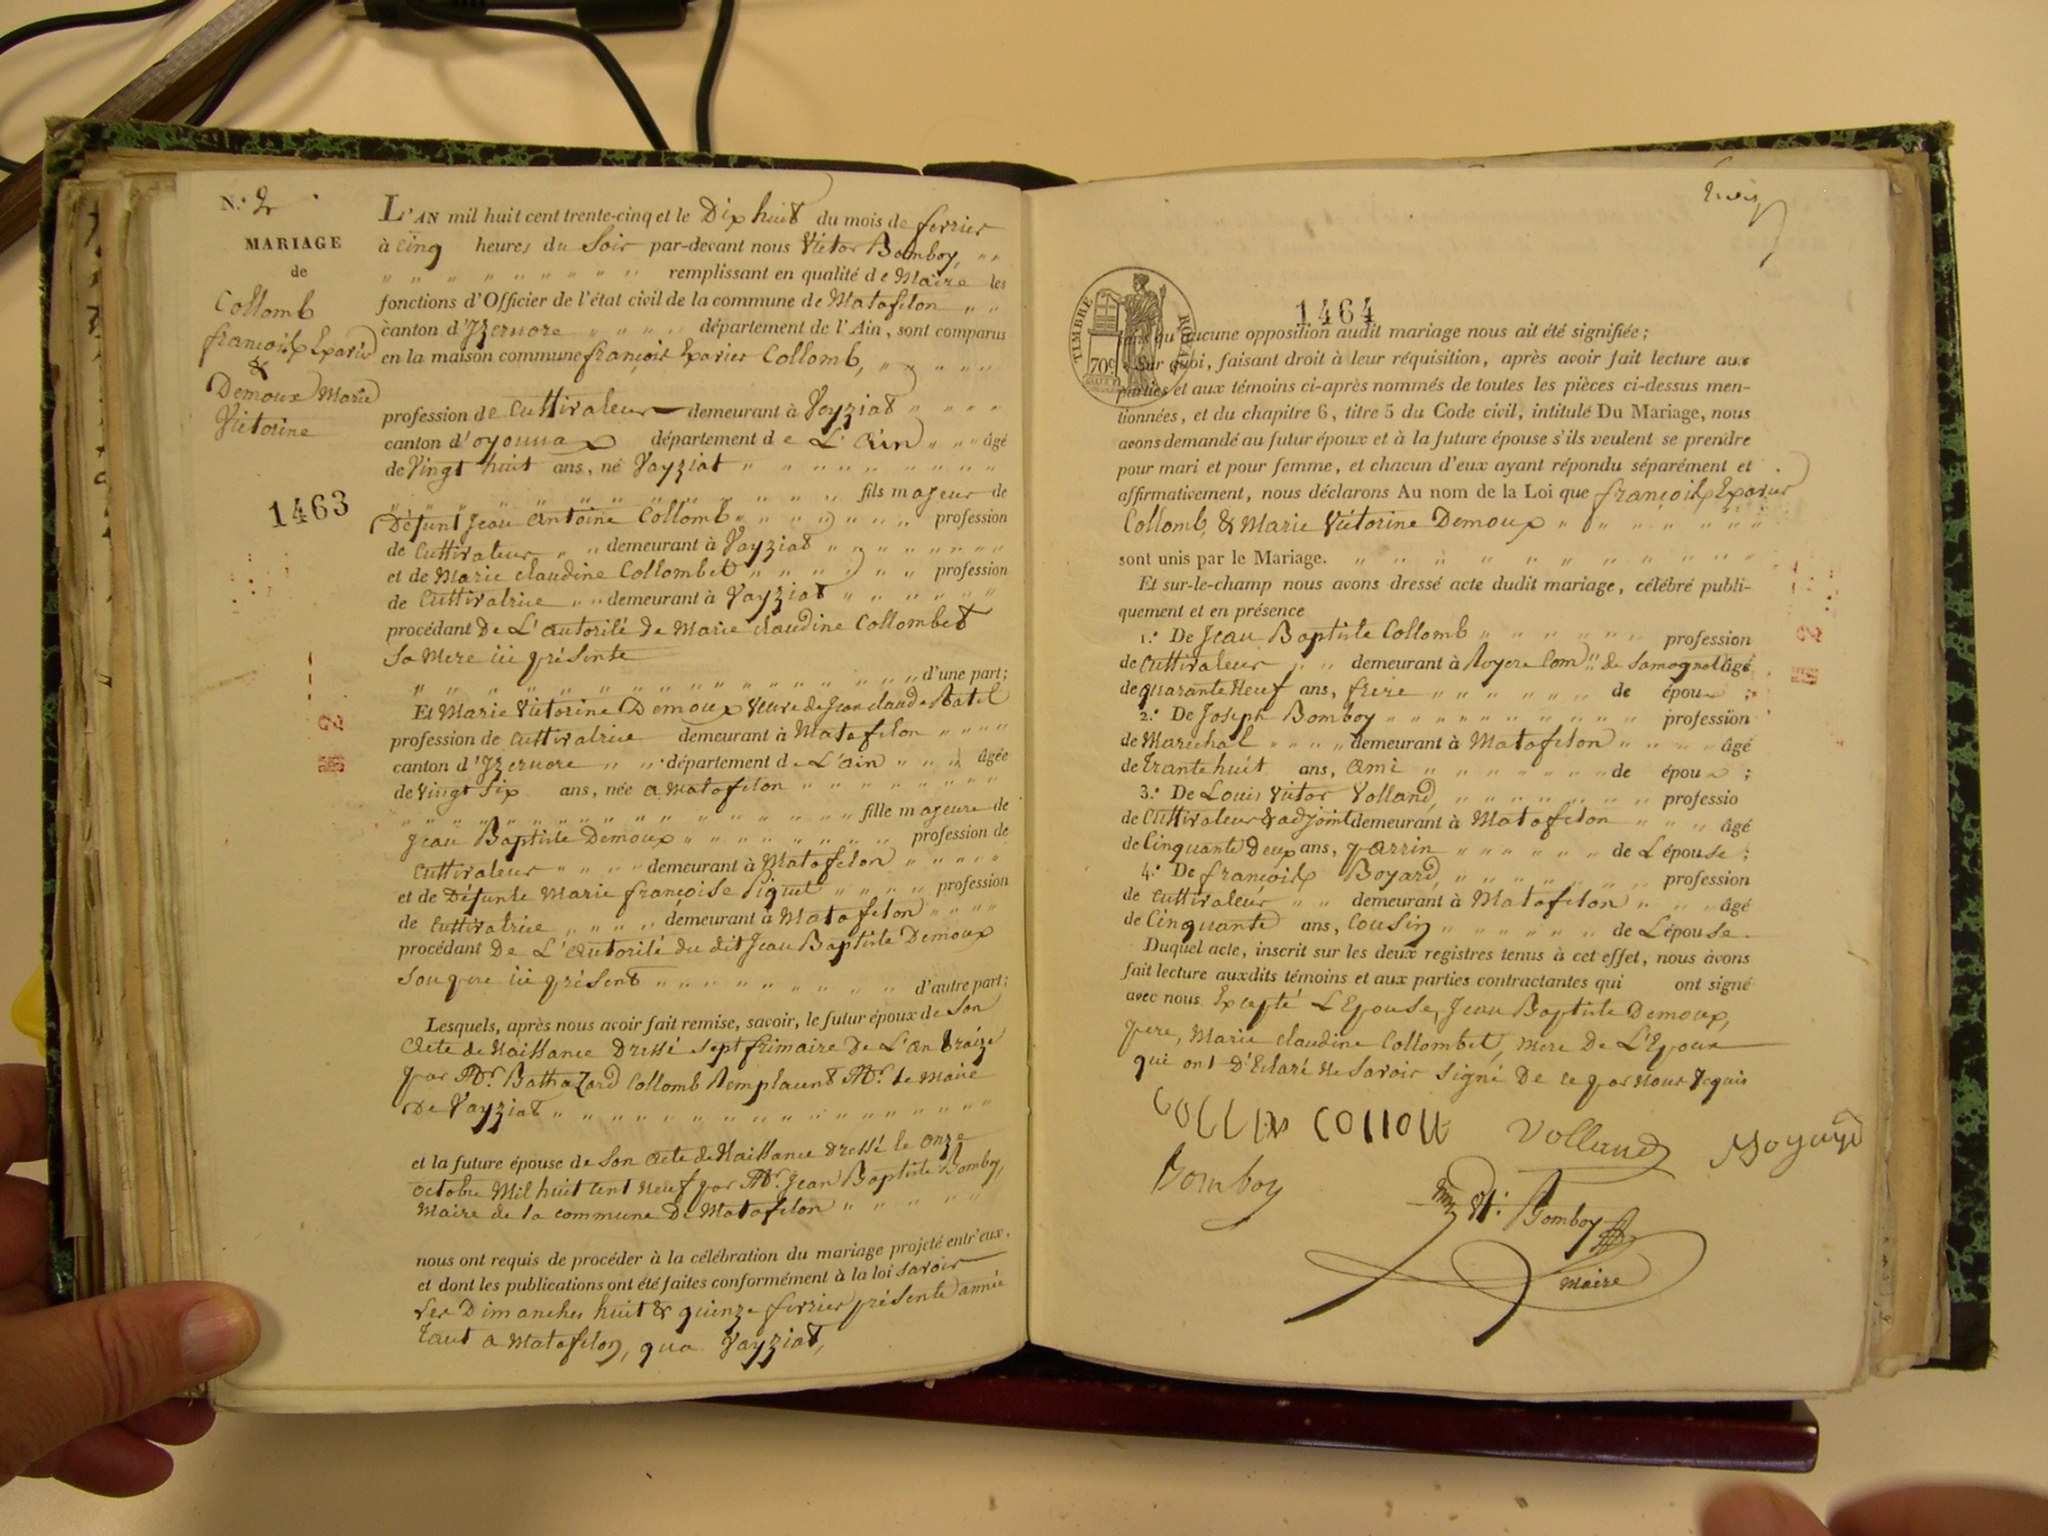 N.° 2
MARIAGE
de
Collomb
françois Exavié
&
Demoux Marie
Victorine
1463
L'AN mil huit cent trente-cinq et le Dix huit du mois de fevrier
à cinq heures du Soir par-devant nous Victor Bomboy, " "
" " " " " " " " " remplissant en qualité de Maire les
fonctions d'Officier de l'état civil de la commune de Matafelon " "
canton d'Izernore " " " " département de l'Ain, sont comparus
en la maison commune françois Exavier Collomb, " " " " "
profession de Cultivateur demeurant à Vayziat " " " "
canton d'oyonnax département de L'Ain " " " âgé
de Vingt huit ans, né Vayziat " " " " " " " "
" " " " " " " " " " " " fils majeur de
Défunt Jean Antoine Collomb " " " " " " " profession
de Cultivateur " " demeurant à Vayziat " " " " " " "
et de Marie claudine Collombet " " " " " " profession
de Cultivatrice " " demeurant à Vayziat " " " " " "
procédant De L'autorité de Marie claudine Collombet
Sa Mere ici présente
" " " " " " " " " " " " " " d'une part;
Et Marie Victorine Demoux Veuve de Jean claude Ratel
profession de Cultivatrice demeurant à Matafelon " " " "
canton d'Izernore " " " département de L'ain " " " âgée
de Vingt Six ans, née a Matafelon " " " " " " "
" " " " " " " " " " " " " fille majeure de
Jean Baptiste Demoux " " " " " " " profession de
Cultivateur " " " " demeurant à Matafelon " " " " "
et de Défunte Marie françoise Piquet " " " " profession
de Cultivatrice " " " " demeurant à Matafelon " " " "
procédant De L'Autorité du dit Jean Baptiste Demoux
Son pere ici présent " " " " " " " " d'autre part;
Lesquels, après nous avoir fait remise, savoir, le futur époux de Son
Acte de Naissance Dressé Sept frimaire De L'an traize
par Mr. Bathazard Collomb Remplacent Mr. le Maire
De Vayziat " " " " " " " " " " " " " "
et la future épouse de Son Acte de Naissance dressé le onze
octobre Mil huit cent Neuf par Mr. Jean Baptiste Bomboy,
Maire de la commune De Matafelon " " " " "
nous ont requis de procéder à la célébration du mariage projeté entr'eux,
et dont les publications ont été faites conformément à la loi Savoir
Les Dimanches huit & quinze fevrier présente année
tant a Matafelon, qua Vayziat,
1464
TIMBRE ROYAL
70c
qu'aucune opposition audit mariage nous ait été signifiée;
Sur quoi, faisant droit à leur réquisition, après avoir fait lecture aux
parties et aux témoins ci-après nommés de toutes les pièces ci-dessus men-
tionnées, et du chapitre 6, titre 5 du Code civil, intitulé Du Mariage, nous
avons demandé au futur époux et à la future épouse s'ils veulent se prendre
pour mari et pour femme, et chacun d'eux ayant répondu séparément et
affirmativement, nous déclarons Au nom de la Loi que françois Exavier
Collomb, & Marie Victorine Demoux " " " " " " "
sont unis par le Mariage. " " " " " " " " " " "
Et sur-le-champ nous avons dressé acte dudit mariage, célébré publi-
quement et en présence
1.° De Jean Baptiste Collomb " " " " " " profession
de Cultivateur " " demeurant à Royere Com ne de Samognat âgé
de quarante Neuf ans, frere " " " " " " de époux ;
2.° De Joseph Bomboy " " " " " " " " " " profession
de Marechal " " " " demeurant à Matafelon " " " " âgé
de trante huit ans, Ami " " " " " " " de époux ;
3.° De Louis Victor Volland, " " " " " " " " professio
de Cultivateur & adjoint demeurant à Matafelon " " " âgé
de Cinquante Deux ans, parrin " " " " " " de L'épouse ;
4.° De françois Boyard, " " " " " " " profession
de cultivateur " " demeurant à Matafelon " " " âgé
de Cinquante ans, Cousin " " " " " " de L'épouse.
Duquel acte, inscrit sur les deux registres tenus à cet effet, nous avons
fait lecture auxdits témoins et aux parties contractantes qui ont signé
avec nous Excepté L'Epouse, Jean Baptiste Demoux,
pere, Marie claudine Collombet, mere De L'Epoux
qui ont D'Eclaré Ne Savoir Signé De ce par Nous Requis
Volland
Bomboy
Vt. Bomboy
Maire